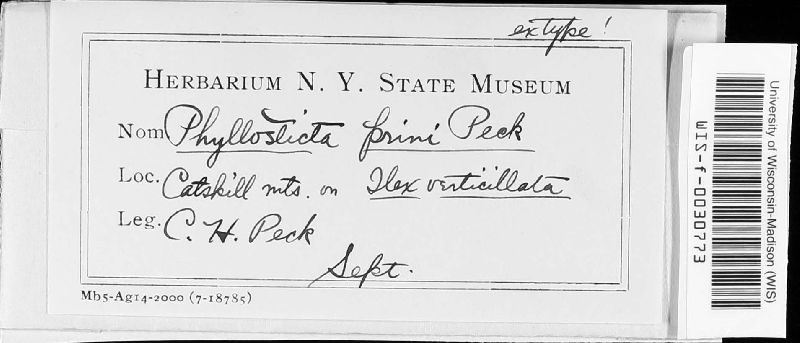 ex type!
HERBARIUM N. Y. STATE MUSEUM
Nom. Phyllosticta prini Peck
Loc. Catskill mts. on Ilex verticillata
Leg. C. H. Peck
Sept.
Mb5-Ag14-2000 (7-18785)
University of Wisconsin-Madison (WIS)
WIS-f-0030773